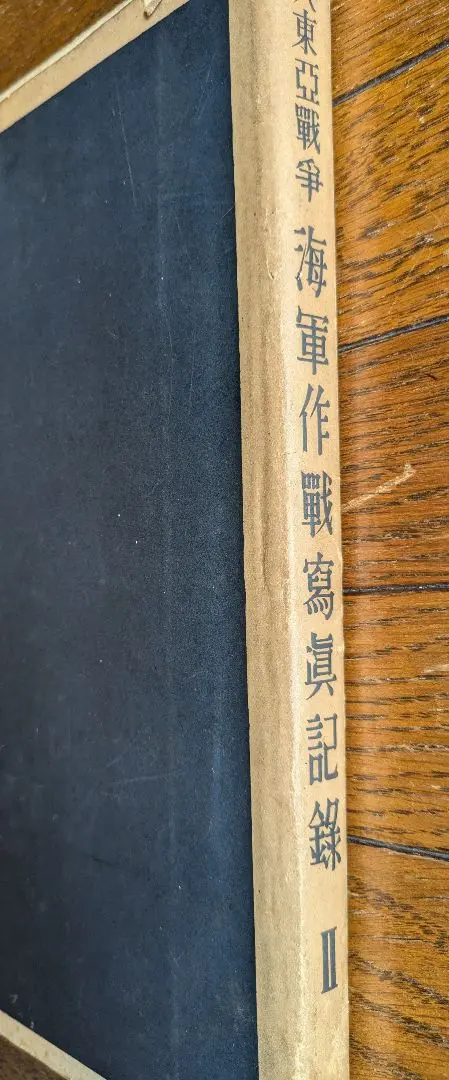 東亞戰爭 海軍作戰寫眞記錄 II